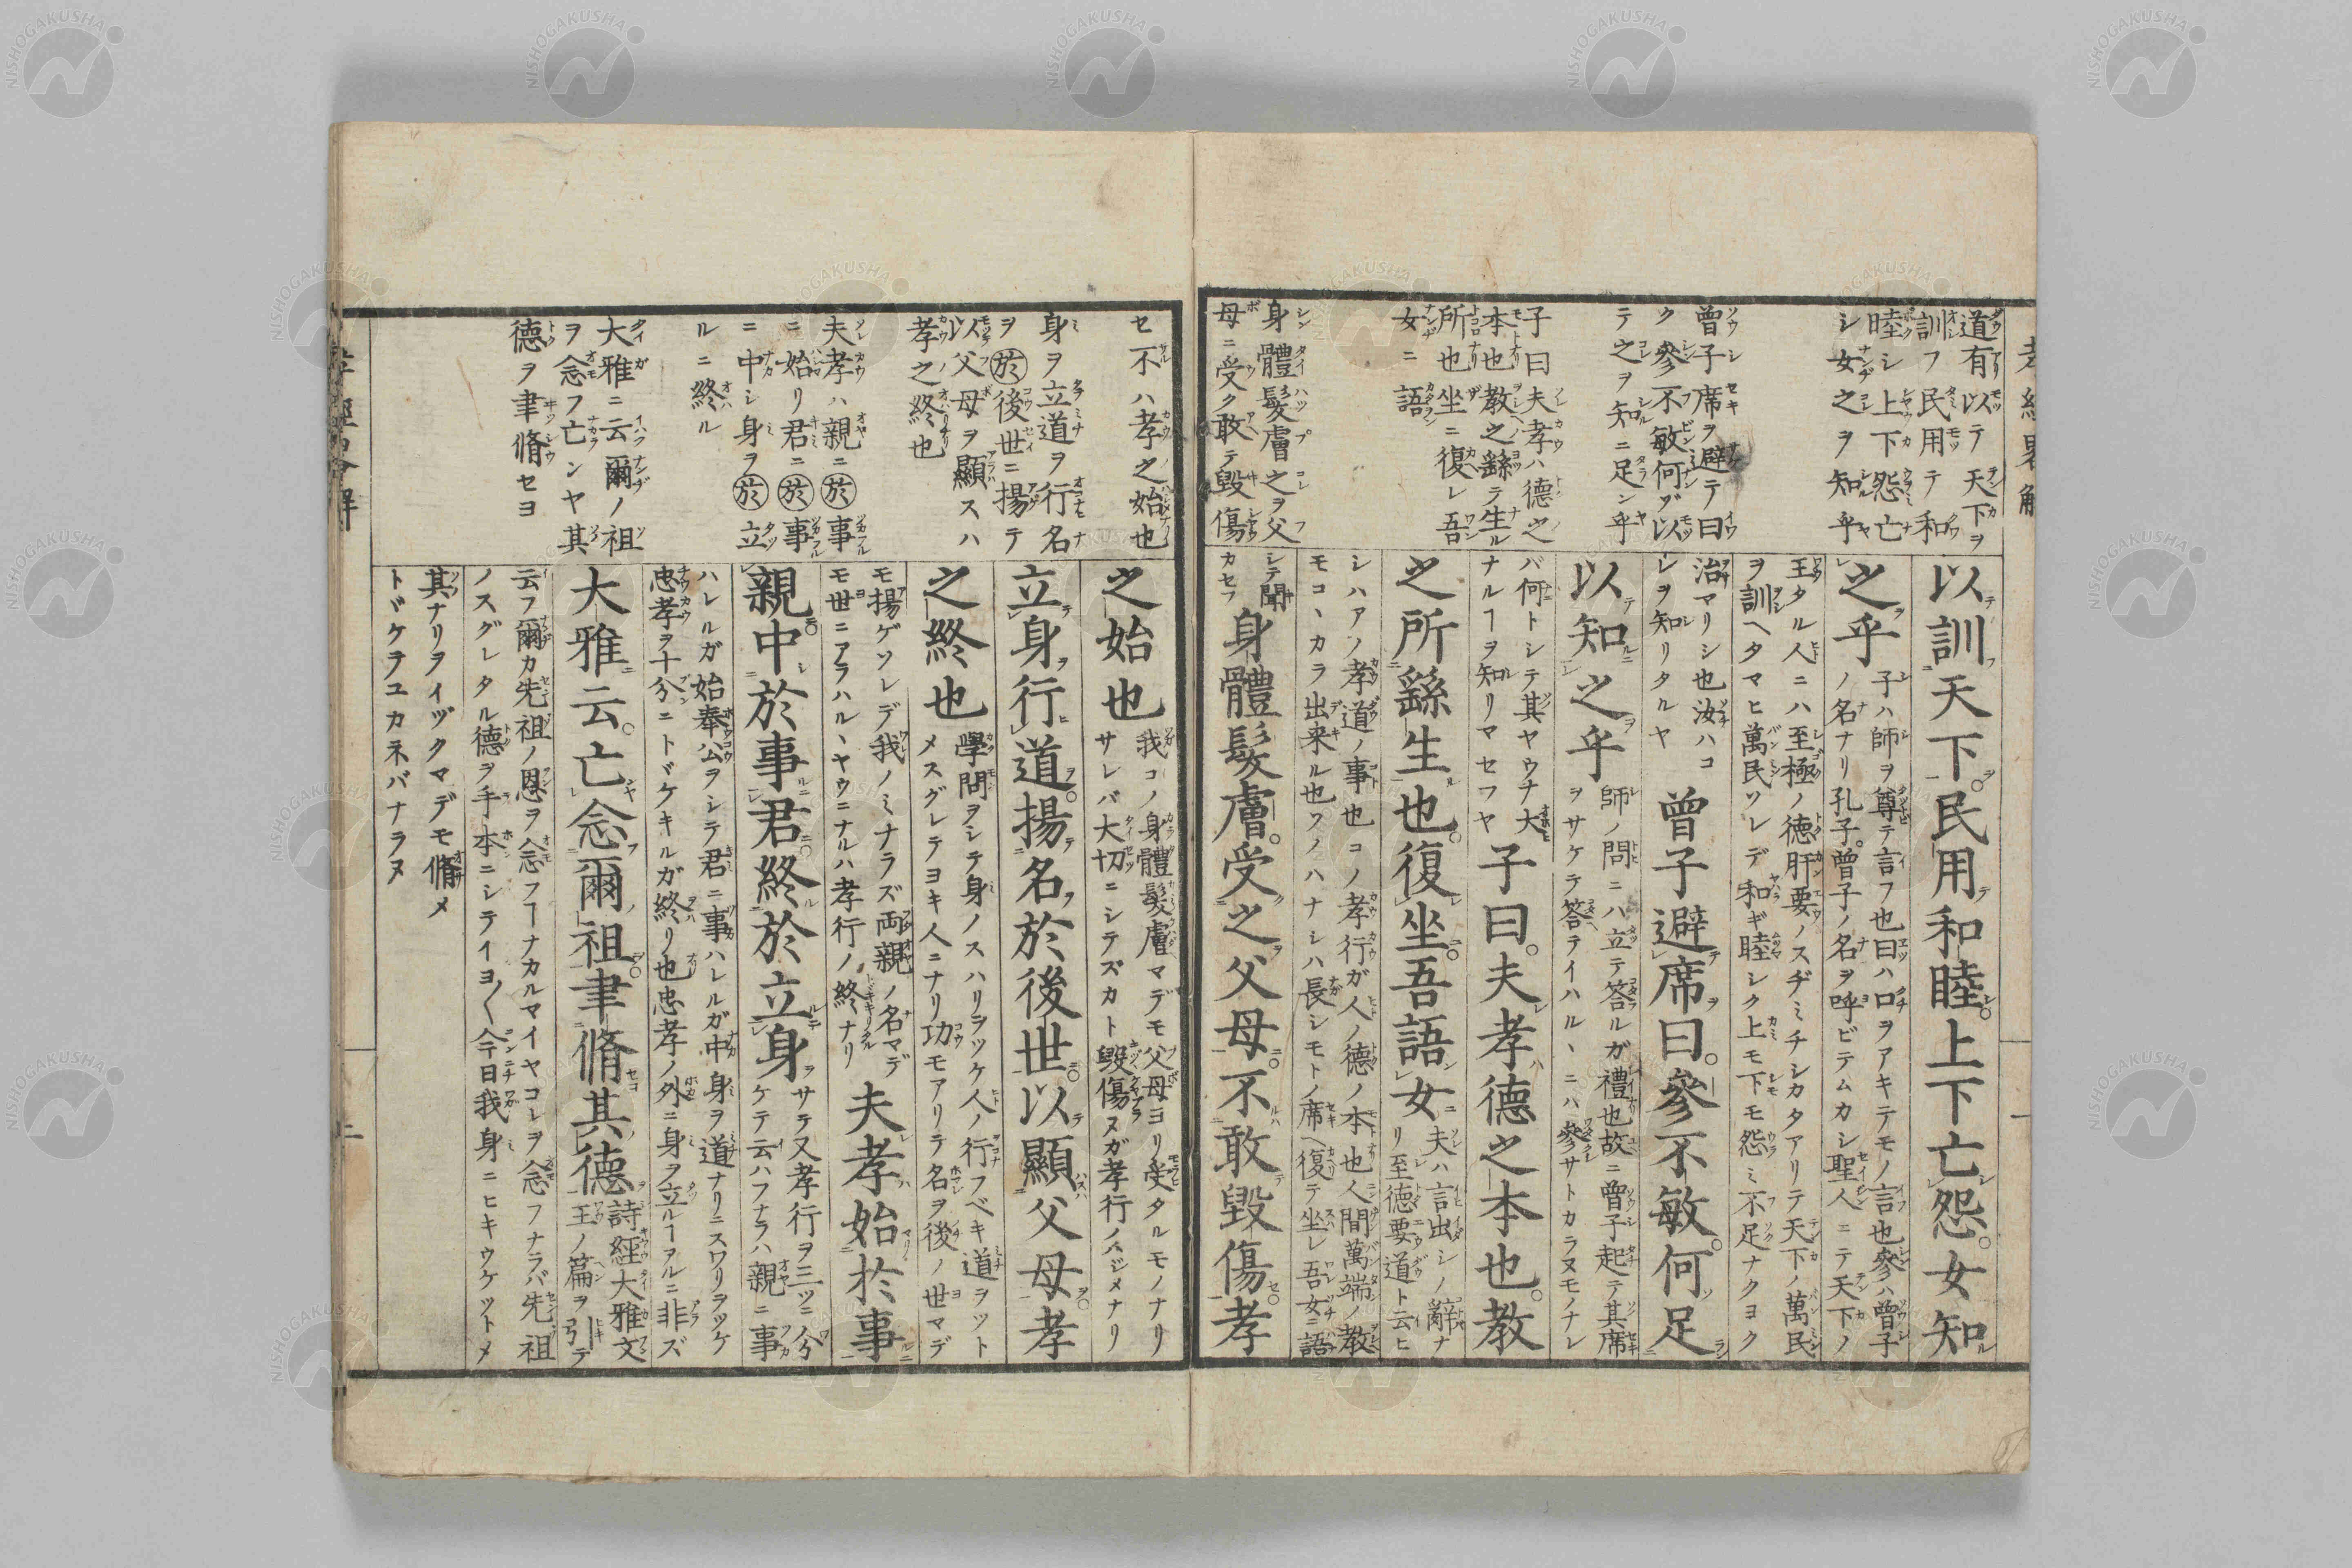 孝經畧解
道有以テ天下ヲ
訓フ民用テ和
睦シ上下怨亡
シ女之ヲ知乎
曾子席ヲ避テ曰
ク參不敏何ゾ以
テ之ヲ知ニ足ン乎
子曰夫孝ハ德之
本也教之繇ラ生ル
所也坐ニ復レ吾
女ニ語
身體髪膚之ヲ父
母ニ受ク敢テ毀傷
以訓天下。民用和睦。上下亡怨。女知
之乎
子ハ師ヲ尊テ言フ也曰ハ口ヲアキテモノ言也參ハ曾子
ノ名ナリ孔子曾子ノ名ヲ呼ビテムカシ聖人ニテ天下ノ
王タル人ニハ至極ノ德肝要ノスヂミチシカタアリテ天下ノ萬民
ヲ訓ヘタマヒ萬民ソレデ和ギ睦シク上モ下モ怨ミ不足ナクヨク
治マリシ也汝ハコ
レヲ知リタルヤ
曾子避席曰。參不敏。何足
以知之乎
師ノ問ニハ立テ答ルガ禮也故ニ曾子起テ其席
ヲサケテ答テイハルヽニハ參サトカラヌモノナレ
バ何トシテ其ヤウナ大
ナルヿヲ知リマセフヤ
子曰。夫孝德之本也。教
之所繇生也。復坐。吾語女
夫ハ言出シノ辭ナ
リ至德要道ト云ヒ
シハアノ孝道ノ事也コノ孝行ガ人ノ德ノ本也人間萬端ノ教
モコヽカラ出来ル也ソノハナシハ長シモトノ席ヘ復テ坐レ吾女ニ語
シテ聞
カセフ
身體髮膚。受之父母。不敢毀傷。孝
一
セ不ハ孝之始也
身ヲ立道ヲ行名
ヲ於後世ニ揚テ
以父母ヲ顯スハ
孝之終也
夫孝ハ親ニ於事
ニ始リ君ニ於事
ニ中シ身ヲ於立
ルニ終ル
大雅ニ云爾ノ祖
ヲ念フ亡ンヤ其
德ヲ聿脩セヨ
之始也
我コノ身體髮膚マデモ父母ヨリ受タルモノナリ
サレバ大切ニシテズカト毀傷ヌガ孝行ノハジメナリ
立身行道。揚名於後世。以顯父母。孝
之終也
學問ヲシテ身ノスハリヲツケ人ノ行フベキ道ヲツト
メスグレテヨキ人ニナリ功モアリテ名ヲ後ノ世マデ
モ揚ゲソレデ我ノミナラズ両親ノ名マデ
モ世ニアラハルヽヤウニナルハ孝行ノ終ナリ
夫孝始於事
親。中於事君。終於立身
サテ又孝行ヲ三ツニ分
ケテ云ハフナラハ親ニ事
ハレルガ始奉公ヲシテ君ニ事ハレルガ中身ヲ道ナリニスワリヲツケ
忠孝ヲ十分ニトヾケキルガ終リ也忠孝ノ外ニ身ヲ立ルヿヲルニ非ズ
大雅云。亡念爾祖。聿脩其德
詩經大雅文
王ノ篇ヲ引テ
云フ爾カ先祖ノ恩ヲ念フヿナカルマイヤコレヲ念フナラバ先祖
ノスグレタル德ヲ手本ニシテイヨ〱今日我身ニヒキウケツトメ
其ナリヲイヅクマデモ脩メ
トヾケテユカネバナラヌ
二